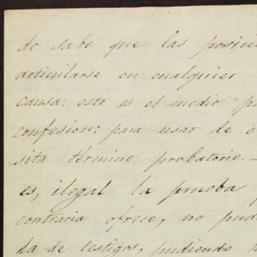 do sabe que las posicio
articularse en cualquier
causa: este es el medio
confesion: para usar de
término probatorio.
es, ilegal la prueba
contraria ofrece, no pud
da de testigos, pudiendo